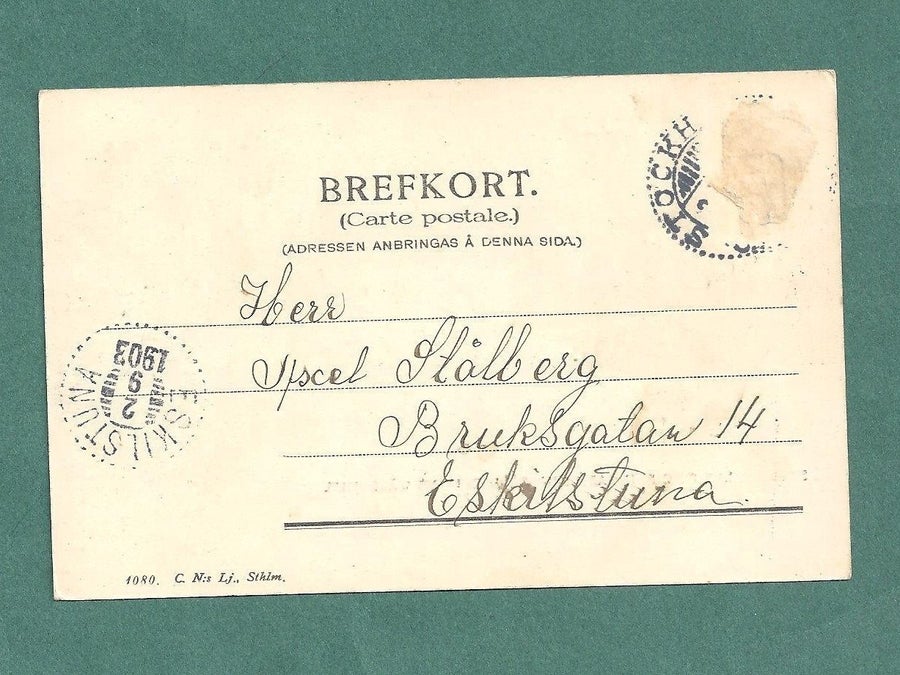 BREFKORT.
(Carte postale.)
(ADRESSEN ANBRINGAS Å DENNA SIDA.)
STOCKH
Herr
Axel Stålberg
Bruksgatan 14
Eskilstuna.
ESKILSTUNA
2
9
1903
1080. C. N:s Lj., Sthlm.